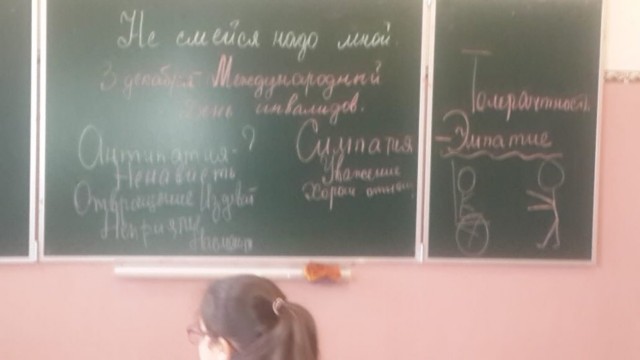 Не смейся надо мной.
3 декабря Международный
День инвалидов.
Антипатия - ?
Ненависть
Отвращение Издеват
Неприязнь
Насмешка
Симпатия
Уважение
Хорош отнош
Толерантность
-Эмпатие